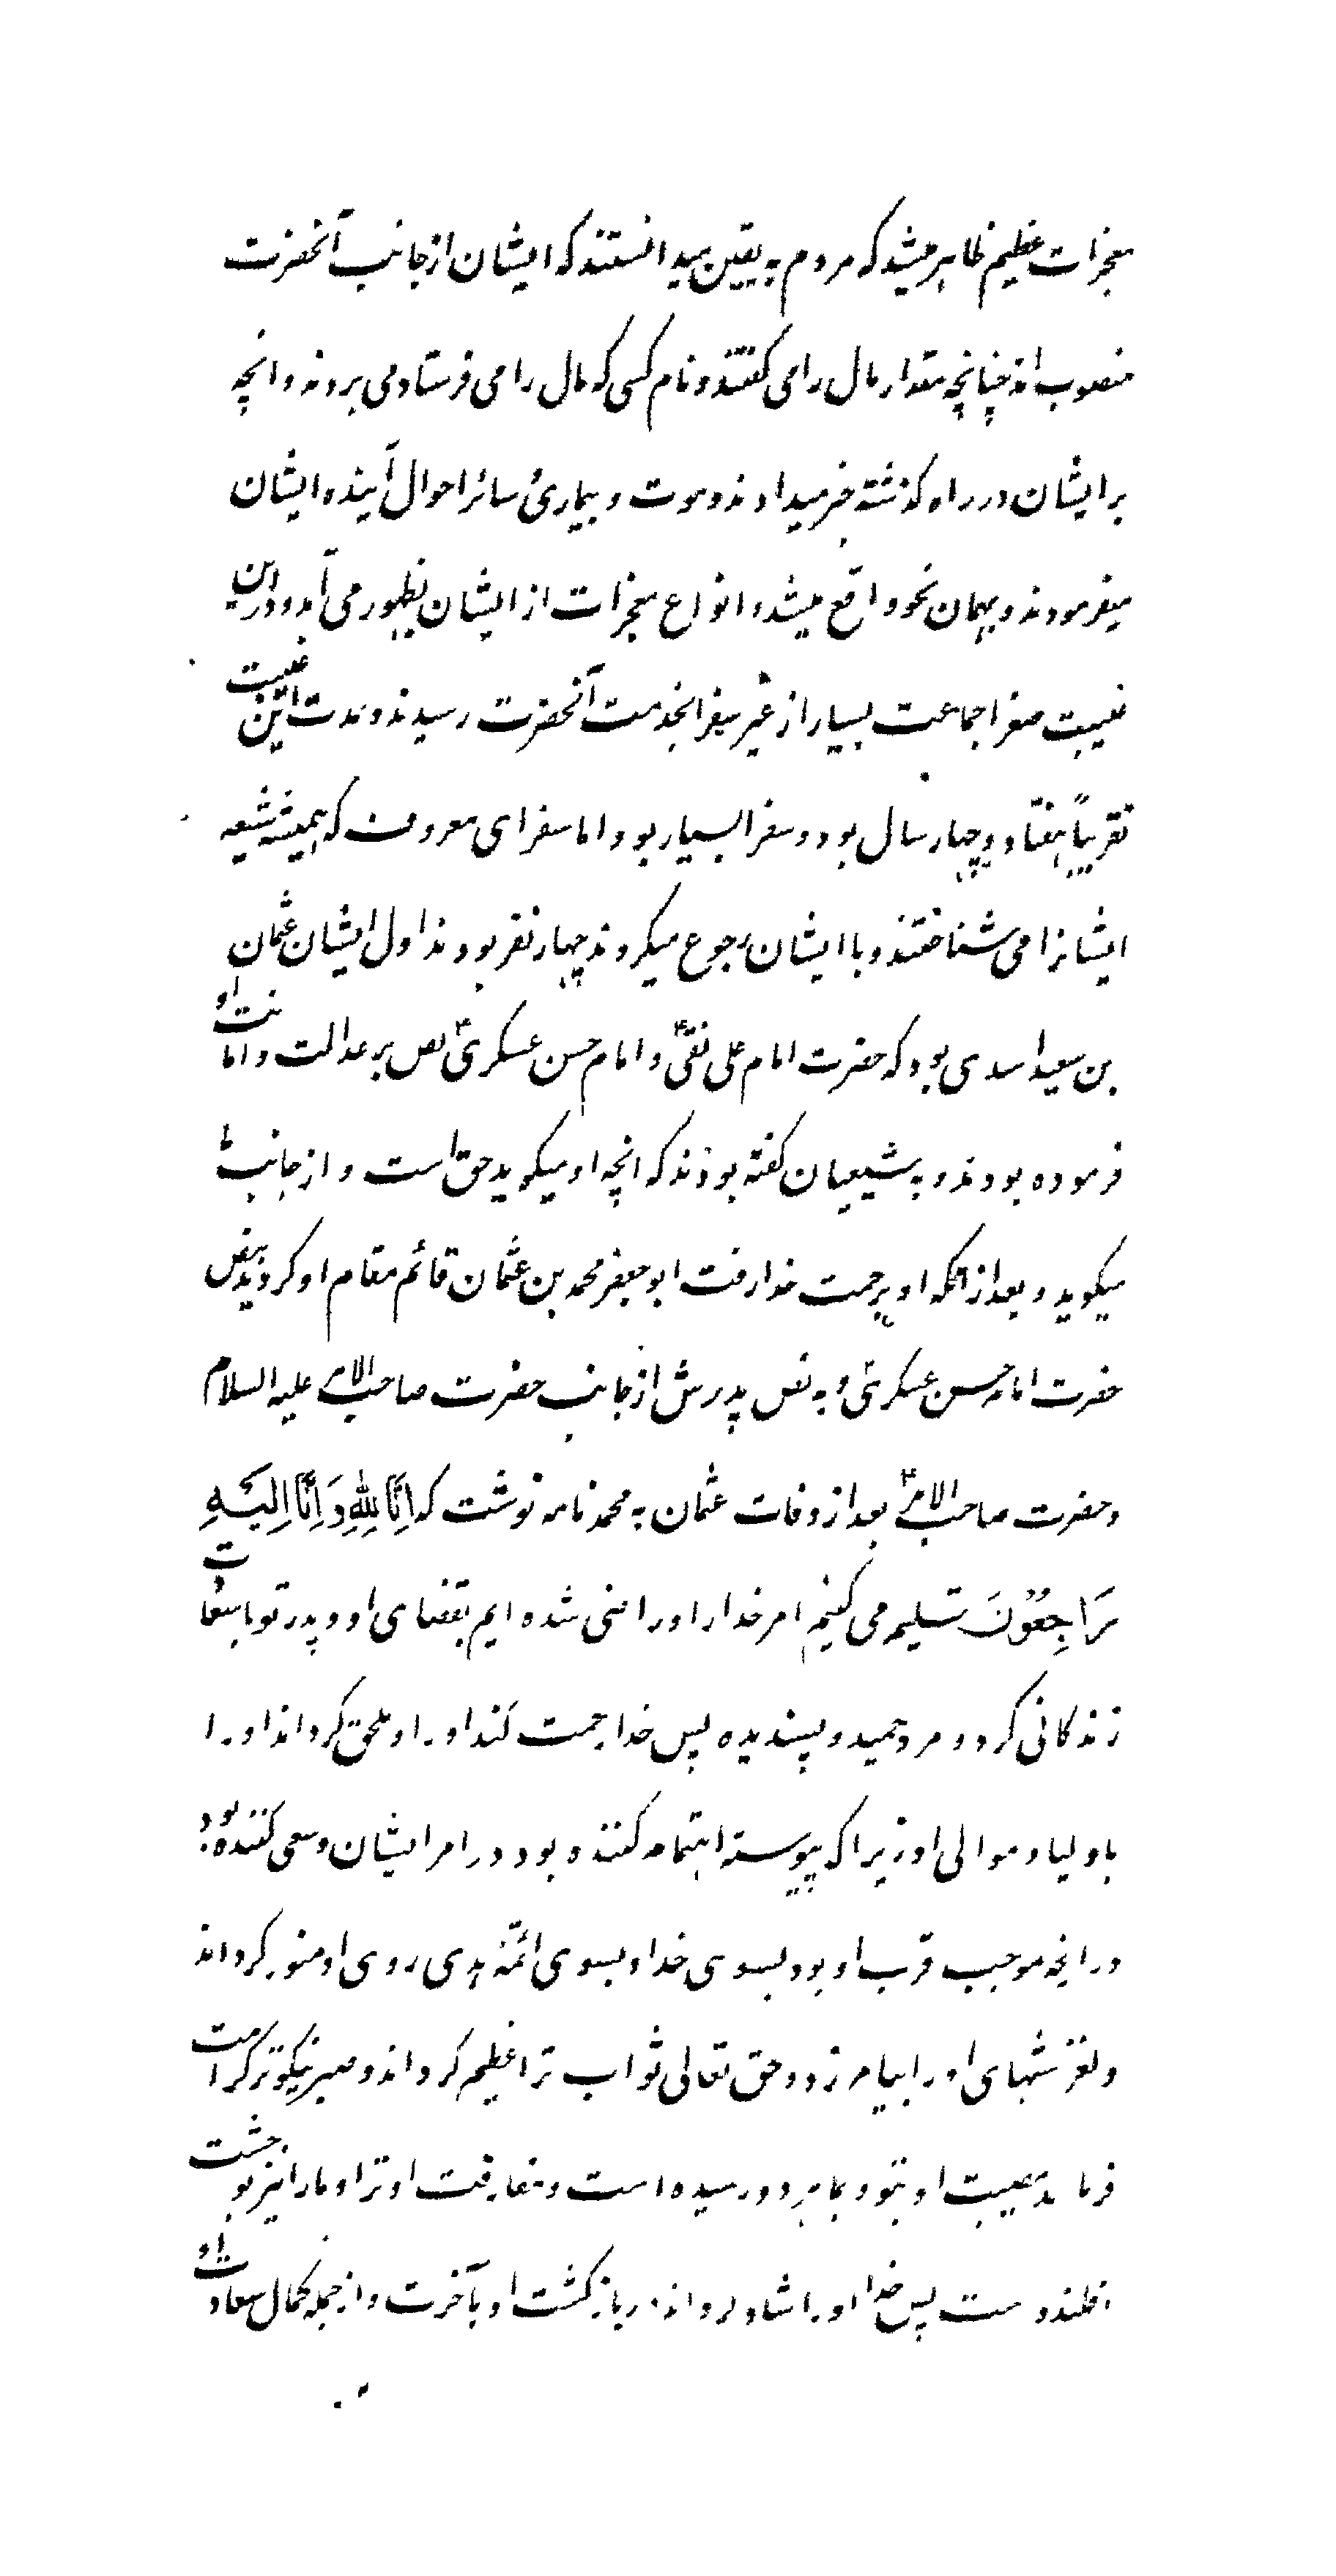 معجزات عظیم ظاهر میشد که مردم به یقین میدانستند که ایشان از جانب آنحضرت
منصوب اند چنانچه مقدار مال را می گفتند و نام کسی که مال را می فرستاد می بردند و انچه
بر ایشان در راه گذشته خبر میدادند و موت و بیماری سائر احوال آینده ایشان
میفرمودند و بهمان نحو واقع میشد و انواع معجزات از ایشان بظهور می آمد و در این
غیبت صغرا جماعت بسیار از غیر سفرا بخدمت آنحضرت رسیدند و مدت این غیبت
تقریباً هفتاد و چهار سال بود و سفرا بسیار بود اما سفرای معروف که همیشه شیعه
ایشانرا می شناختند و با ایشان رجوع میکردند چهار نفر بودند اول ایشان عثمان
بن سعید اسدی بود که حضرت امام علی نقیؑ و امام حسن عسکریؑ نص بر عدالت و امانت او
فرموده بودند و به شیعیان گفته بودند که انچه او میگوید حق است و از جانب ما
میگوید و بعد از انکه او برحمت خدا رفت ابو جعفر محمد بن عثمان قائم مقام او کردند بنص
حضرت امام حسن عسکریؑ و به نص پدرش از جانب حضرت صاحب الامر علیه السلام
و حضرت صاحب الامرؑ بعد از وفات عثمان به محمد نامه نوشت که اِنَّا لِلّٰهِ وَ اِنَّا اِلَیْهِ
رَاجِعُوْنَ تسلیم می کنیم امر خدا را و راضی شده ایم بقضای او و پدر تو با سعادت
زندگانی کرد و مرد حمید و پسندیده پس خدا رحمت کند او را و ملحق گرداند او را
باولیا و موالی او زیرا که پیوسته اهتمام کننده بود در امر ایشان و سعی کننده بود
در انچه موجب قرب او بود بسوی خدا و بسوی ائمّه هدی روی او منور گرداند
و لغزشهای او را بیامرزد و حق تعالی ثواب ترا عظیم گرداند و صبر نیکو ترا کرامت
فرماید مصیبت او بتو و بما هر دو رسیده است و مفارقت او ترا و ما را نیز بوحشت
افکنده است پس خدا او را شاد گرداند در بازگشت او بآخرت و از جمله کمال سعادت او